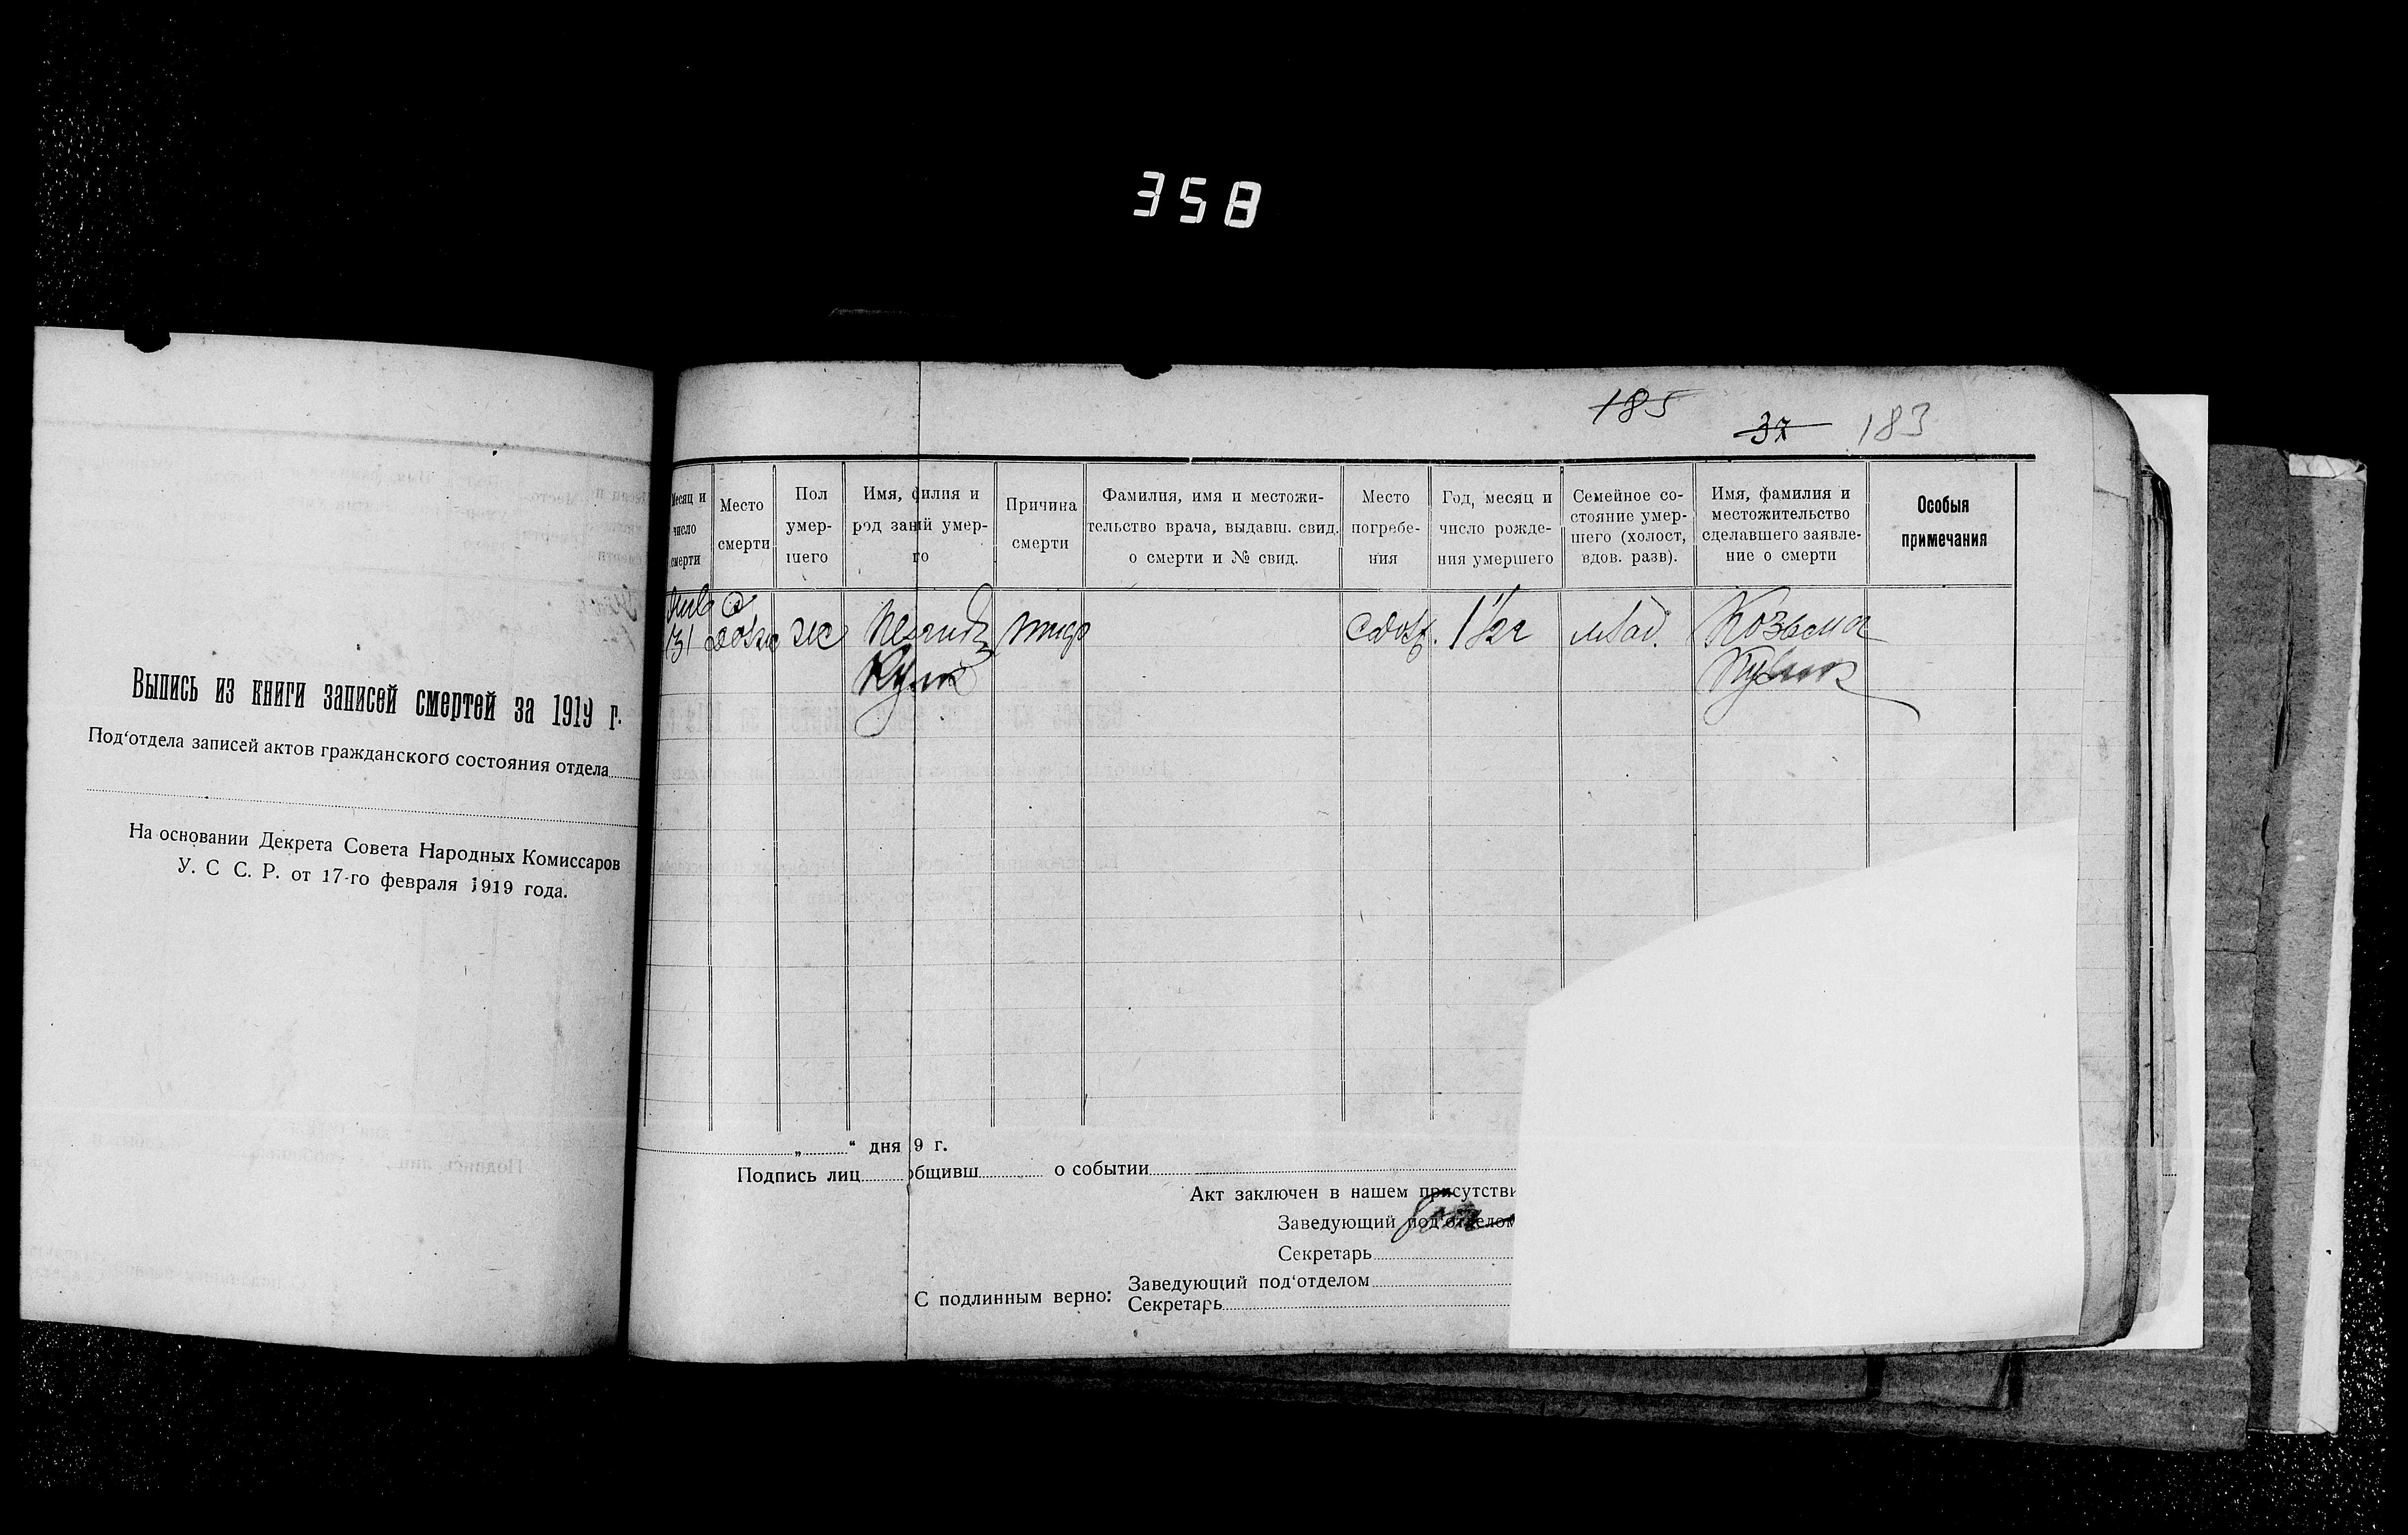 358
Выпись из книги записей смертей за 1919 г.
Под‘отдела записей актов гражданского состояния отдела
На основании Декрета Совета Народных Комиссаров
У. С С. Р. от 17-го февраля 1919 года.
185
37
183
Месяц и число смерти
Место смерти
Пол умер-
шего
Имя, филия и
род заній умер-
го
Причина
смерти
Фамилия, имя и местожи-
тельство врача, выдавш. свид.
о смерти и № свид.
Место
погребе-
ния
Год, месяц и
число рожде-
ния умершего
Семейное со-
стояние умер-
шего (холост,
вдов. разв).
Имя, фамилия и
местожительство
сделавшего заявле-
ние о смерти
Особыя
примечания
31
ж
тиф
1 1/2 г
млад.
Козьма
„ “ дня 9 г.
Подпись лиц общивш о событии
Акт заключен в нашем присутстви
Заведующий под‘отделом
Секретарь
С подлинным верно:
Заведующий под‘отделом
Секретарь